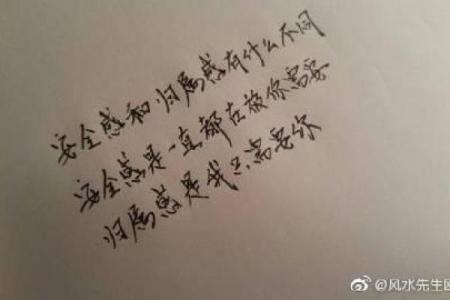 安全感和归属感有什么不同
安全感是一直都在被你需要
归属感是我只需要你
@风水先生